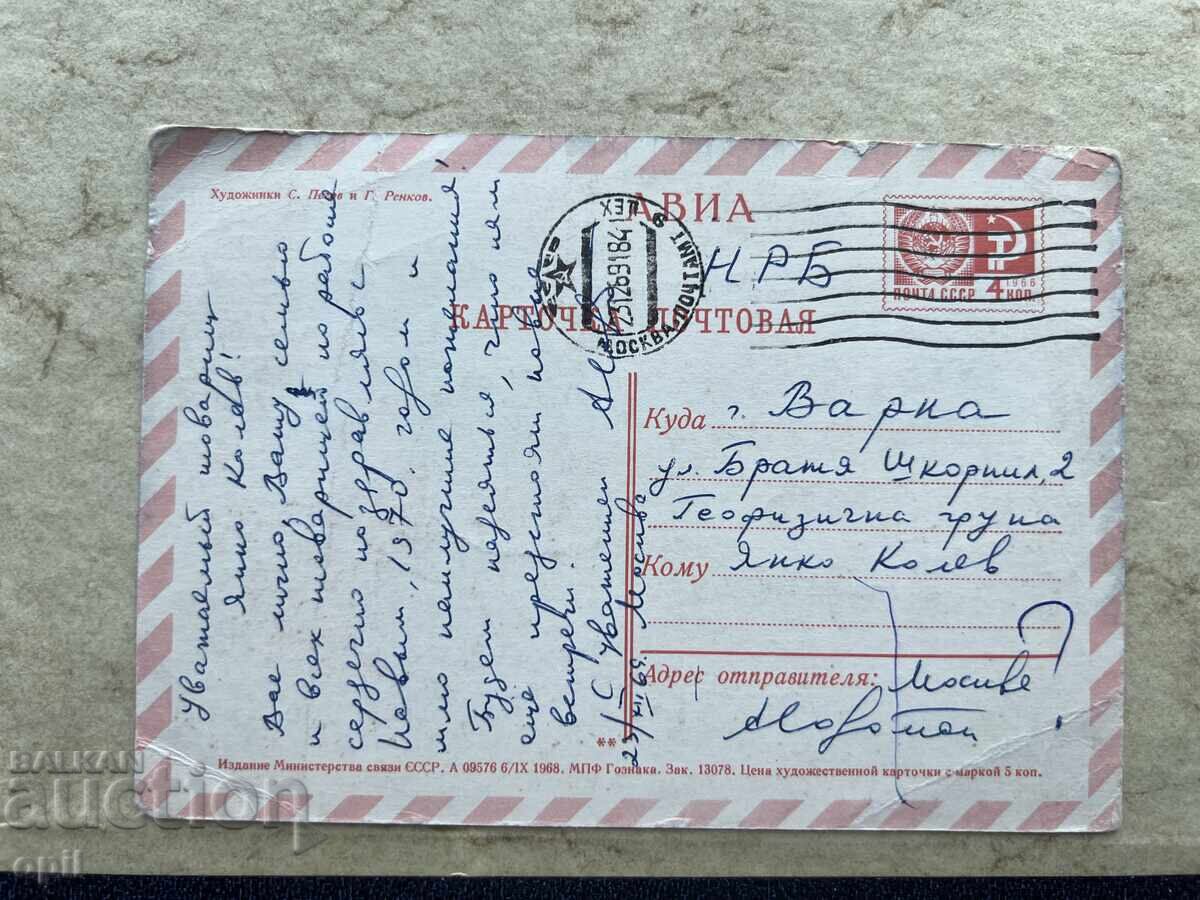 Художники С. Пеев и Г. Ренков.
АВИА
НРБ
КАРТОЧКА ПОЧТОВАЯ
ПОЧТА СССР
1966
4 КОП.
МОСКВА-ПОЧТАМТ
ЦЕХ
251269184
Уважаемый товарищ
Янко Колев!
Вас лично Вашу семью
и всех товарищей по работе
сердечно поздравляю с
Новым, 1970. годом и
шлю наилучшие пожелания!
Будем надеяться, что нам
еще предстоят новые
встречи.
С уважением
23/XII 69. Москва
Куда г. Варна
ул. Братя Шкорпил, 2
Геофизична група
Кому Янко Колев
Адрес отправителя: Москве
?
**
Издание Министерства связи СССР. А 09576 6/IX 1968. МПФ Гознака. Зак. 13078. Цена художественной карточки с маркой 5 коп.
BALKAN
auction
opil